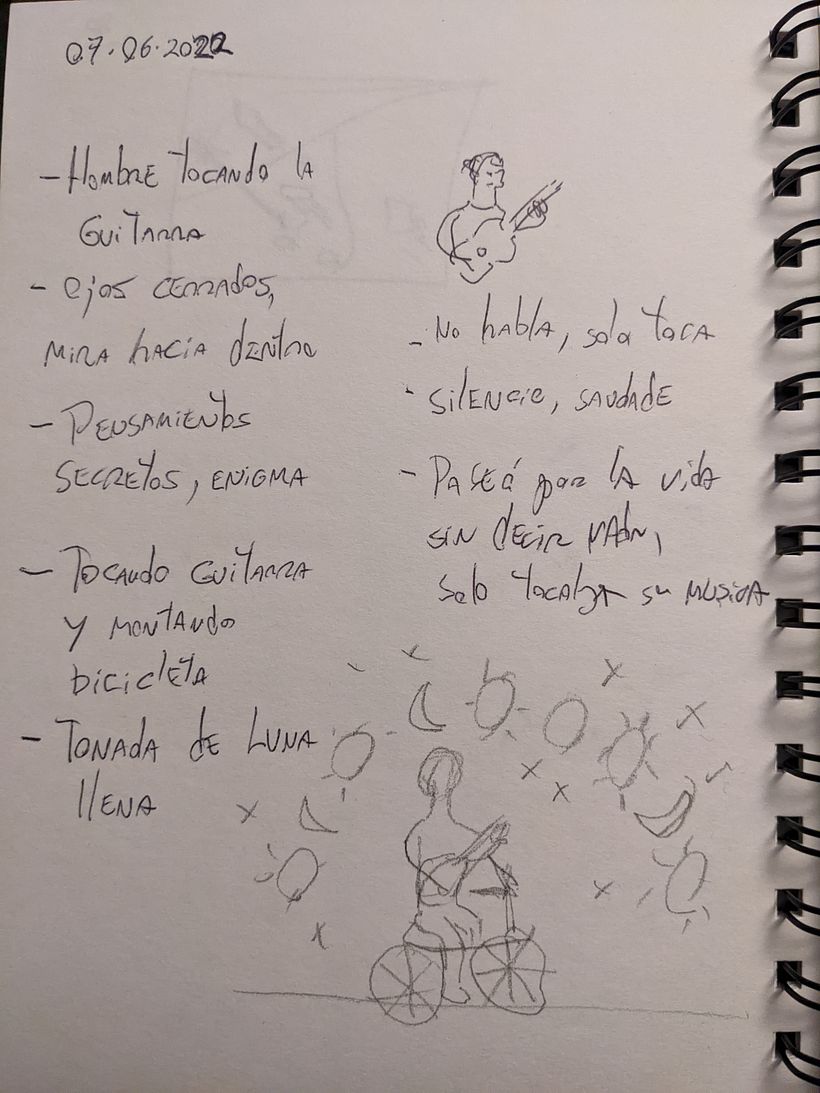 07.06.2022
- Hombre tocando la
guitarra
- ojos cerrados,
mira hacia dentro
- Pensamientos
secretos, enigma
- Tocando guitarra
y montando
bicicleta
- Tonada de Luna
llena
- No habla, solo toca
- silencio, saudade
- Pasea por la vida
sin decir nada,
solo tocando su musica